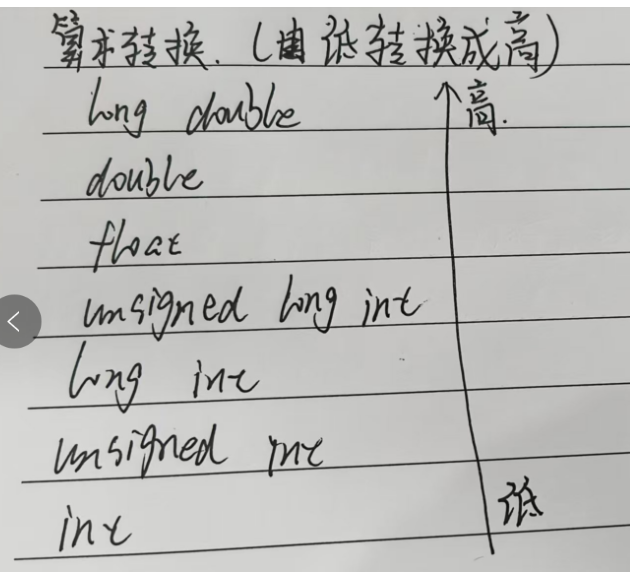 算术转换.（由低转换成高）
long double
高.
double
float
unsigned long int
long int
unsigned int
int
低